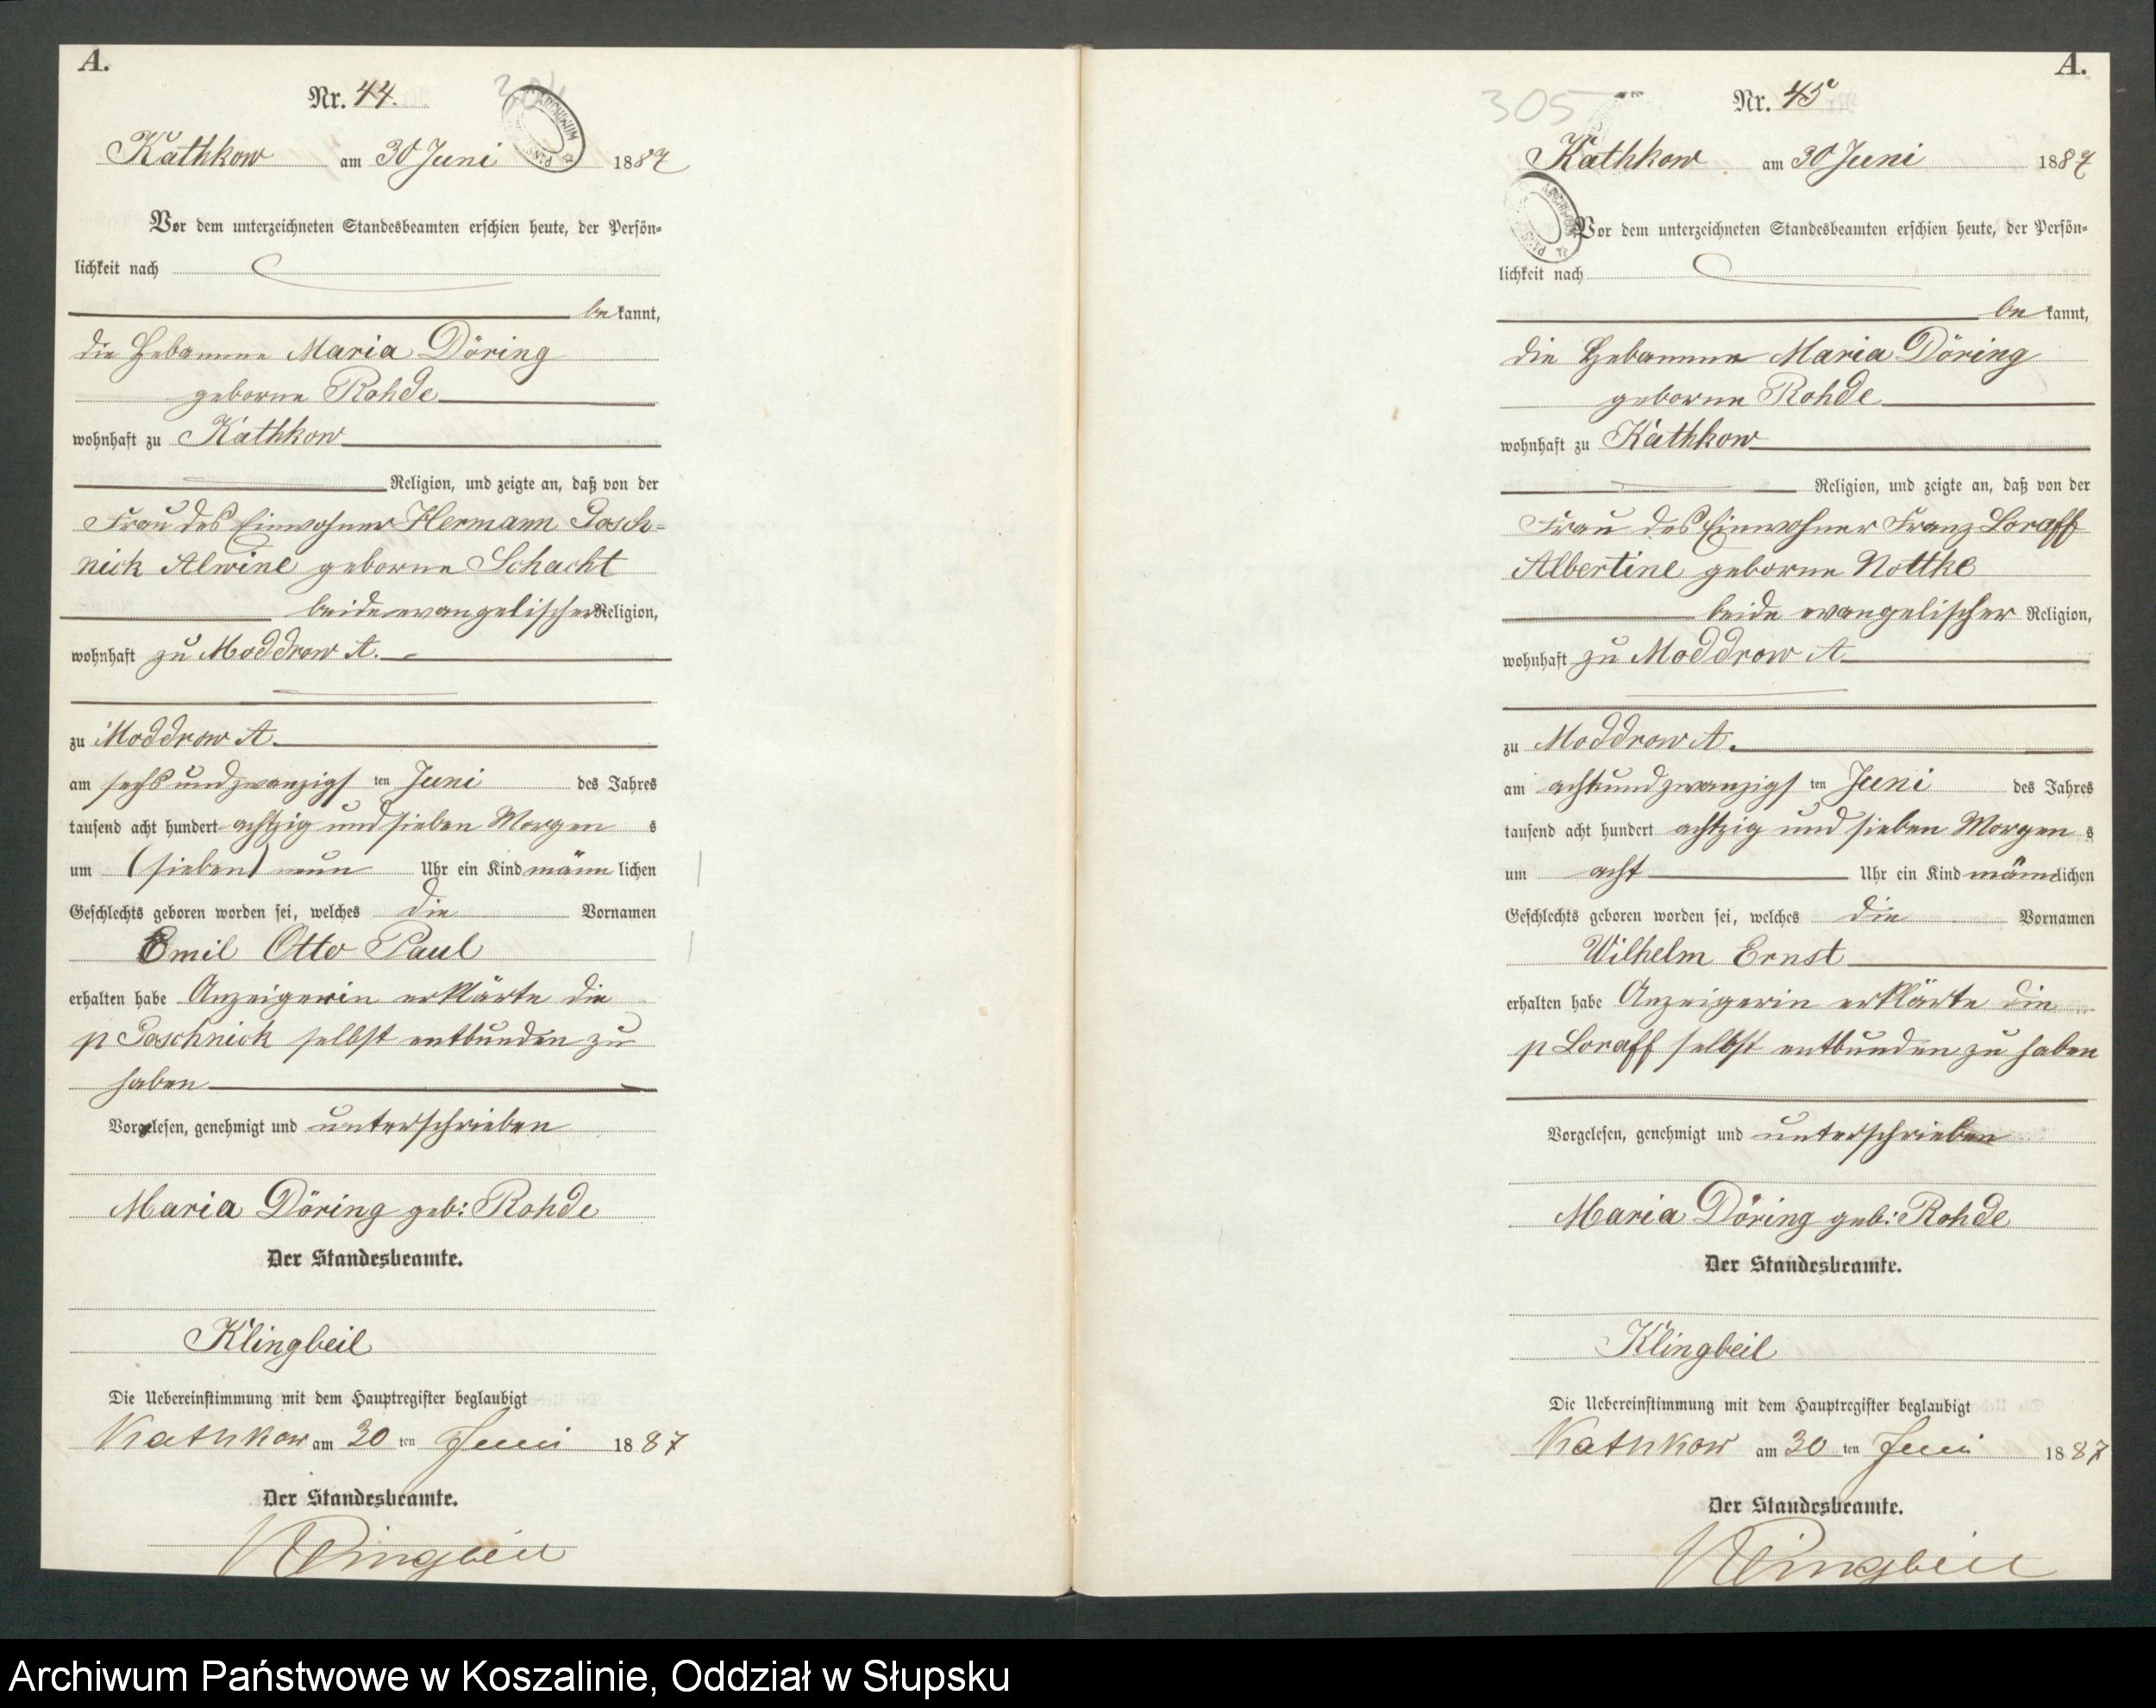 A.
Nr. 44.
Kathkow am 30 Juni 1887
Vor dem unterzeichneten Standesbeamten erschien heute, der Persön-
lichkeit nach
be kannt,
die Hebamme Maria Döring
geborne Rohde
wohnhaft zu Kathkow
Religion, und zeigte an, daß von der
Frau des Einwohner Hermann Pasch-
nick Alwine geborne Schacht
beide evangelischer Religion,
wohnhaft zu Moddrow A.
zu Moddrow A.
am sechsundzwanzigs ten Juni des Jahres
tausend acht hundert achtzig und sieben Morgen s
um (sieben) neun Uhr ein Kind männ lichen
Geschlechts geboren worden sei, welches die Vornamen
Emil Otto Paul
erhalten habe Anzeigerin erklärte die
p Paschnick selbst entbunden zu
haben
Vorgelesen, genehmigt und unterschrieben
Maria Döring geb: Rohde
Der Standesbeamte.
Klingbeil
Die Uebereinstimmung mit dem Hauptregister beglaubigt
Kathkow am 30 ten Juni 1887
Der Standesbeamte.
Klingbeil
A.
305
Nr. 45
Kathkow am 30 Juni 1887
Vor dem unterzeichneten Standesbeamten erschien heute, der Persön-
lichkeit nach
be kannt,
die Hebamme Maria Döring
geborne Rohde
wohnhaft zu Kathkow
Religion, und zeigte an, daß von der
Frau des Einwohner Franz Loraff
Albertine geborne Nottke
beide evangelischer Religion,
wohnhaft zu Moddrow A
zu Moddrow A.
am achtundzwanzigs ten Juni des Jahres
tausend acht hundert achtzig und sieben Morgen s
um acht Uhr ein Kind männlichen
Geschlechts geboren worden sei, welches die Vornamen
Wilhelm Ernst
erhalten habe Anzeigerin erklärte die
p Loraff selbst entbunden zu haben
Vorgelesen, genehmigt und unterschrieben
Maria Döring geb: Rohde
Der Standesbeamte.
Klingbeil
Die Uebereinstimmung mit dem Hauptregister beglaubigt
Kathkow am 30 ten Juni 1887
Der Standesbeamte.
Klingbeil
Archiwum Państwowe w Koszalinie, Oddział w Słupsku